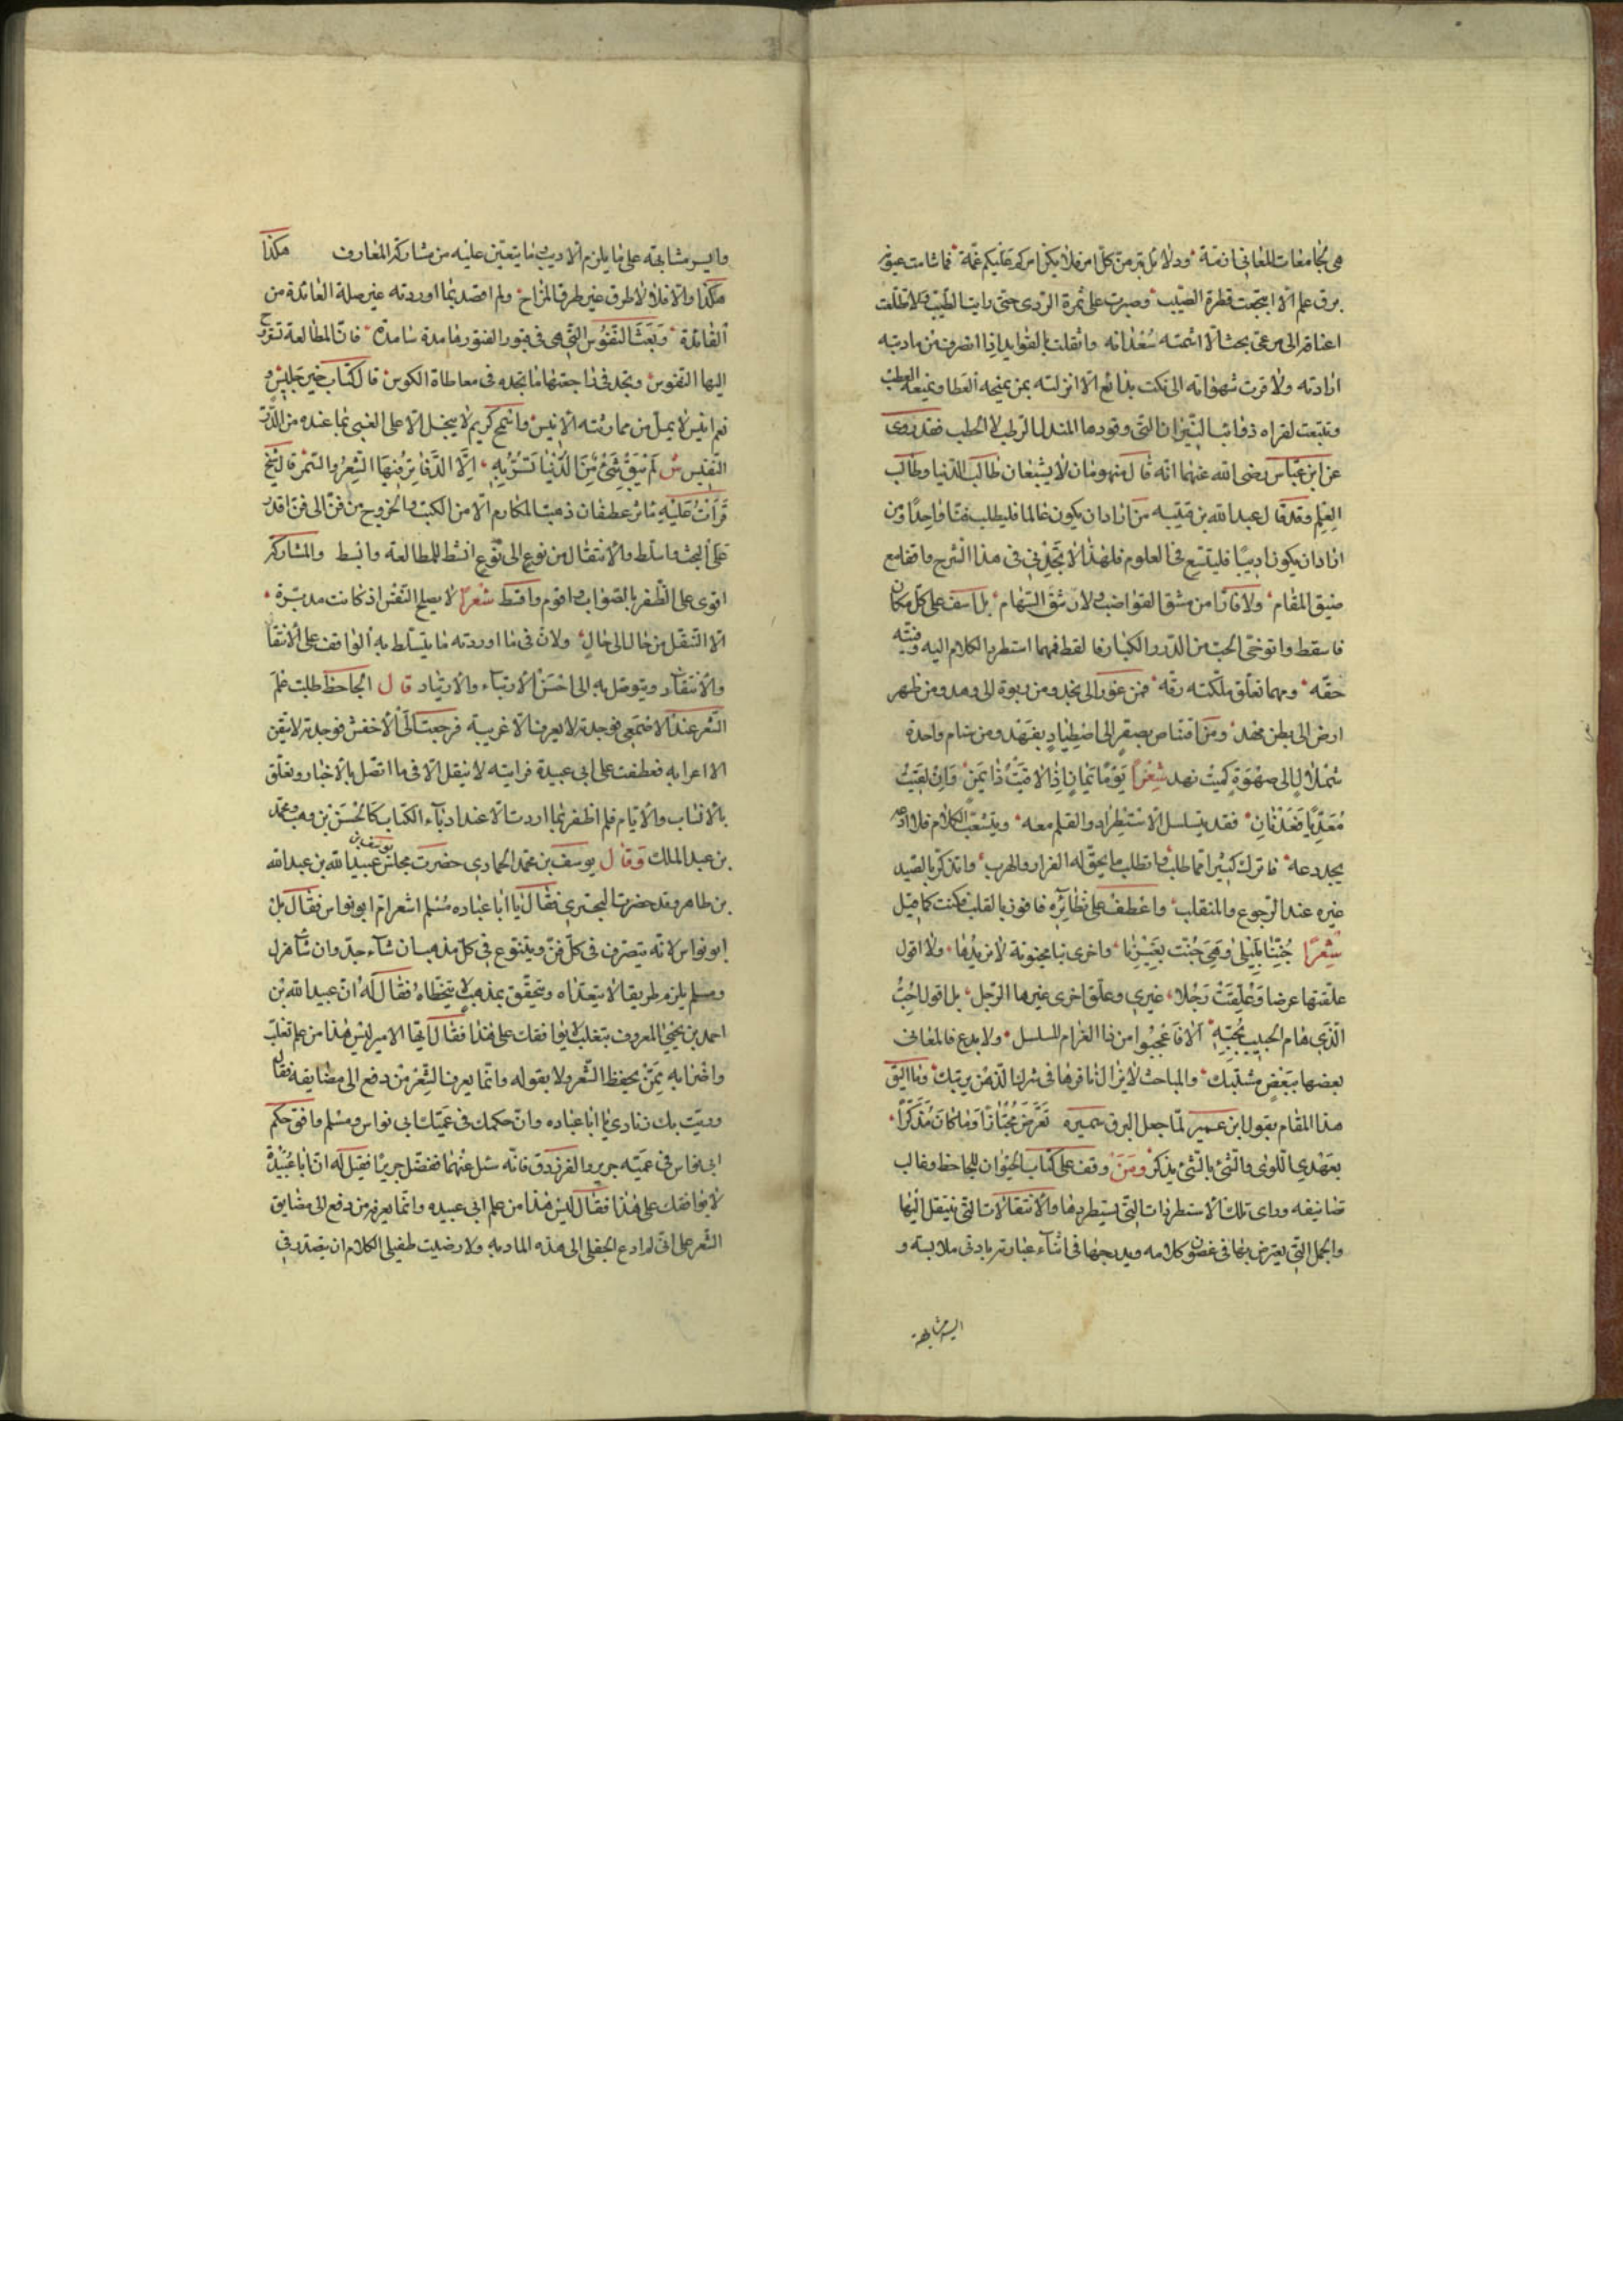 هي لجامعات المعاني ازمة ودلائل تبر من كل امر فلا يكن امركم عليكم غمة فما شامت عيني
برق علم الا انتجعت قطرة الصيب وصبرت على ثمرة الردى حتى رايت الطيب ولا تطلعت
اعناقه الى مرعى بحث الا اشمته سعدانه واثقلت بالفوايد اذا انصرف من مادبته
ارادته ولا قرت شهواته الى نكت بدائع الا انزلته بمن يمنحه العطا ويمنعه العطب
وتتبعت لقراه ذوائب النيران التي وقودها المندل الرطب لا الحطب فقد روى
عن ابن عباس رضى الله عنهما انه قال منهومان لا يشبعان طالب الدنيا وطالب
العلم وقد قال عبد الله بن قتيبه من اراد ان يكون عالما فليطلب فنا واحدا ومن
اراد ان يكون اديبا فليتسع في العلوم فلهذا لا تجدني في هذا الشرح واقفا مع
ضيق المقام ولا فارا من مشق القواضب ولا رشق السهام بل اسف على كل مكان
فاسقط واتوخى الحب من الدرر الكبار فالقط فمهما استطرد الكلام اليه وفيته
حقه ومهما تعلق ملكته رقه فمن غور الى نجد ومن ربوة الى وهد ومن ظهر
ارض الى بطن مهد ومن اقتناص بصقر الى اصطياد بفهد ومن شام واحدة
شملال الى صهوة كميت نهد شعرا يوما يمان اذا لاقيت ذا يمن وان لقيت
معديا فعدنان فقد يتسلسل الاستطراد والقلم معه ويتشعب الكلام فلا ادعه
يجد دعه فاترك كثيرا مما طلب واتطلب ما يحق له الفرار والهرب واتذكر بالصيد
غيره عند الرجوع والمنقلب واعطف على نظائره فافوز بالقلب فكنت كما قيل
شعرا جننا بليلى وهي جنت بغيرنا واخرى بنا مجنونة لا نريدها ولا اقول
علقتها عرضا وعلقت رجلا غيري وعلق اخرى غيرها الرجل بل اقول احب
الذي هام الحبيب بحبه الا فاعجبوا من ذا الغرام المسلسل ولا بدع فالمعاني
بعضها ببعض مشتبك والمباحث لا يزال نافرها في شرك الذهن يرتبك وما اليق
هذا المقام بقول ابن عمير لما جعل البرق سميره تعرض مجتازا وما كان مذكرا
بعهد اللوى والشئ بالشئ يذكر ومن وقف على كتاب الحيوان للجاحظ وغالب
تصانيفه وراى تلك الاستطرادات التي يستطردها والانتقالات التي ينتقل اليها
والجمل التي يعترض بها في غضون كلامه ويدرجها في اثناء عبارته بادنى ملابسة و
ايسر مشابهة
وايسر مشابهة على ما يلزم الاديب ما يتعين عليه من مشاركة المعارف هكذا
هكذا والا فلا لا طرق غير طرق المزاح ولم اقصد بما اوردته غير صلة العائدة من
الفائدة وبعث النفوس التي هي في قبور الفتور هامدة سامدة فان المطالعة تقترح
اليها النفوس وتجد في مراجعتها ما تجده في معاطاة الكوس قال كتاب خير جليس و
نعم انيس لا يمل من ممارسته الانيس واسمح كريم لا يبخل الا على الغبي بما عنده من الدر
النفيس ش لم يبق شئ من الدنيا نسر به الا الدفاتر فيها الشعر والسمر قال شيخ
قرات عليه ثائر عطفان ذهبت المكارم الا من الكتب والخروج من فن الى فن اقدر
على البحث واسلط والانتقال من نوع الى نوع انشط للمطالعة وابسط والمشاركة
اقوى على الظفر بالصواب واقوم واقسط شعرا لا يصلح النفس اذ كانت مدبرة
الا التنقل من حال الى حال ولان في ما اوردته ما يتسلط به الواقف على الانتقا
والانتقاد ويتوصل به الى احسن الارتياء والارتياد قال الجاحظ طلبت علم
الشعر عند الاصمعي فوجدته لا يعرف الا غريبه فرجعت الى الاخفش فوجدته لا يتقن
الا اعرابه فعطفت على ابي عبيدة فرايته لا ينقل الا في ما اتصل بالاخبار وتعلق
بالانساب والايام فلم اظفر بما اردت الا عند ادباء الكتاب كالحسن بن وهب ومحمد
بن عبد الملك وقال يوسف بن محمد الحمادي حضرت مجلس عبيد الله بن عبد الله
بن طاهر وقد حضرت البحتري فقال يا ابا عباده مسلم اشعر ام ابو نواس فقال بل
ابو نواس لانه يتصرف في كل فن ويتنوع في كل مذهب ان شاء جد وان شاء هزل
ومسلم يلزم طريقا لا يتعداه ويتحقق بمذهب لا يتخطاه فقال له ان عبيد الله بن
احمد بن يحيى المعروف بثعلب لا يوافقك على هذا فقال ايها الامير ليس هذا من علم ثعلب
واضرابه ممن يحفظ الشعر ولا يقوله وانما يعرف الشعر من دفع الى مضايقه فقال
وريت بك زنادي يا ابا عباده وان حكمك في عميك ابي نواس ومسلم وافق حكم
ابي نواس في عميه جرير والفرزدق فانه سئل عنهما ففضل جريرا فقيل له ان ابا عبيدة
لا يوافقك على هذا فقال ليس هذا من علم ابي عبيده وانما يعرفه من دفع الى مضايق
الشعر على انى لم ادع الجفلى الى هذه المادبه ولا رضيت طفيلي الكلام ان يتصدر في